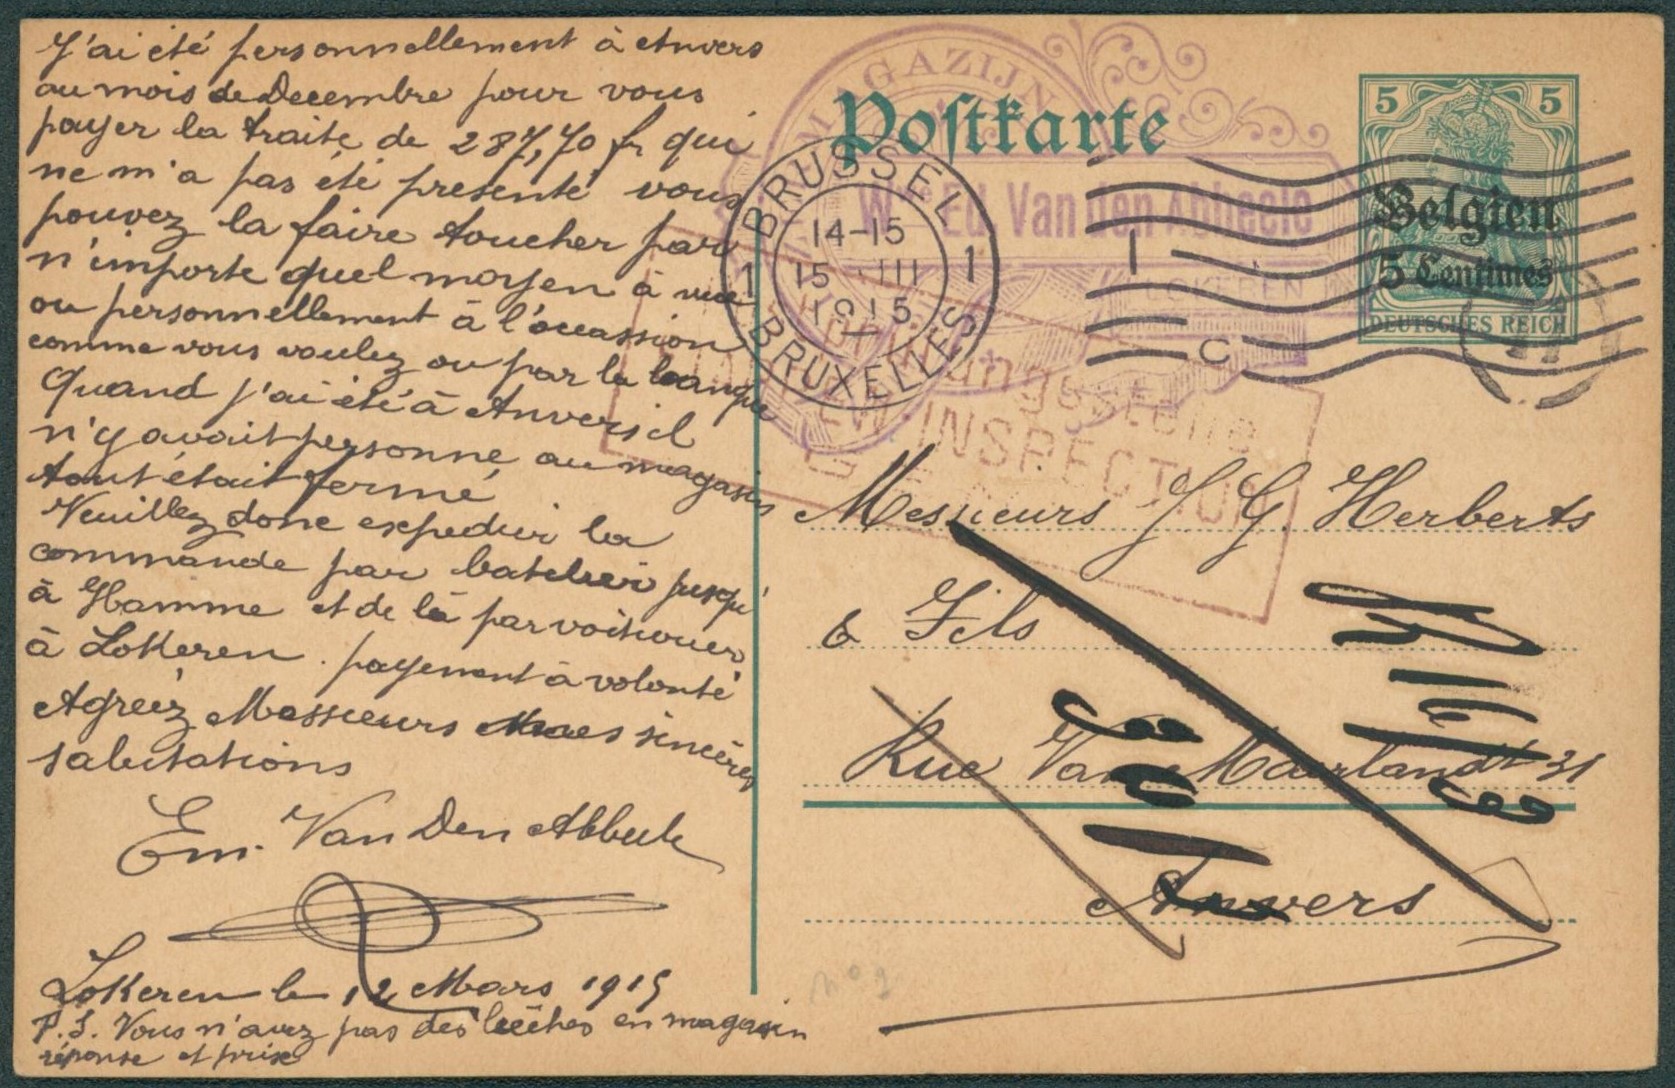 J'ai été personnellement à Anvers
au mois de Decembre pour vous
payer la traite de 287,70 fr qui
ne m'a pas été presenté vous
pouvez la faire toucher par
n'importe quel moyen à vue
ou personnellement à l'ocassion
comme vous voulez ou par la banque
Quand j'ai été à Anvers il
n'y avait personne au magasin
tout était fermé
Veuillez donc expedier la
commande par batelier jusqu'
à Hamme et de là par voiturier
à Lokeren. payement à volonté
Agréez Messieurs mes sincères
salutations
Em. Van Den Abbeele
Lokeren le 12 Mars 1915
P.S. Vous n'avez pas des bêches en magasin
réponse et prix
Postkarte
MAGAZIJN
Wwe Ed. Van den Abbeele
LOKEREN
BRUSSEL
1 1
14-15
15 III
1915
BRUXELLES
INSPECTION
5 5
Belgien
5 Centimes
DEUTSCHES REICH
Messieurs J. G. Herberts
& Fils
Rue Van Maerlandt 31
Anvers